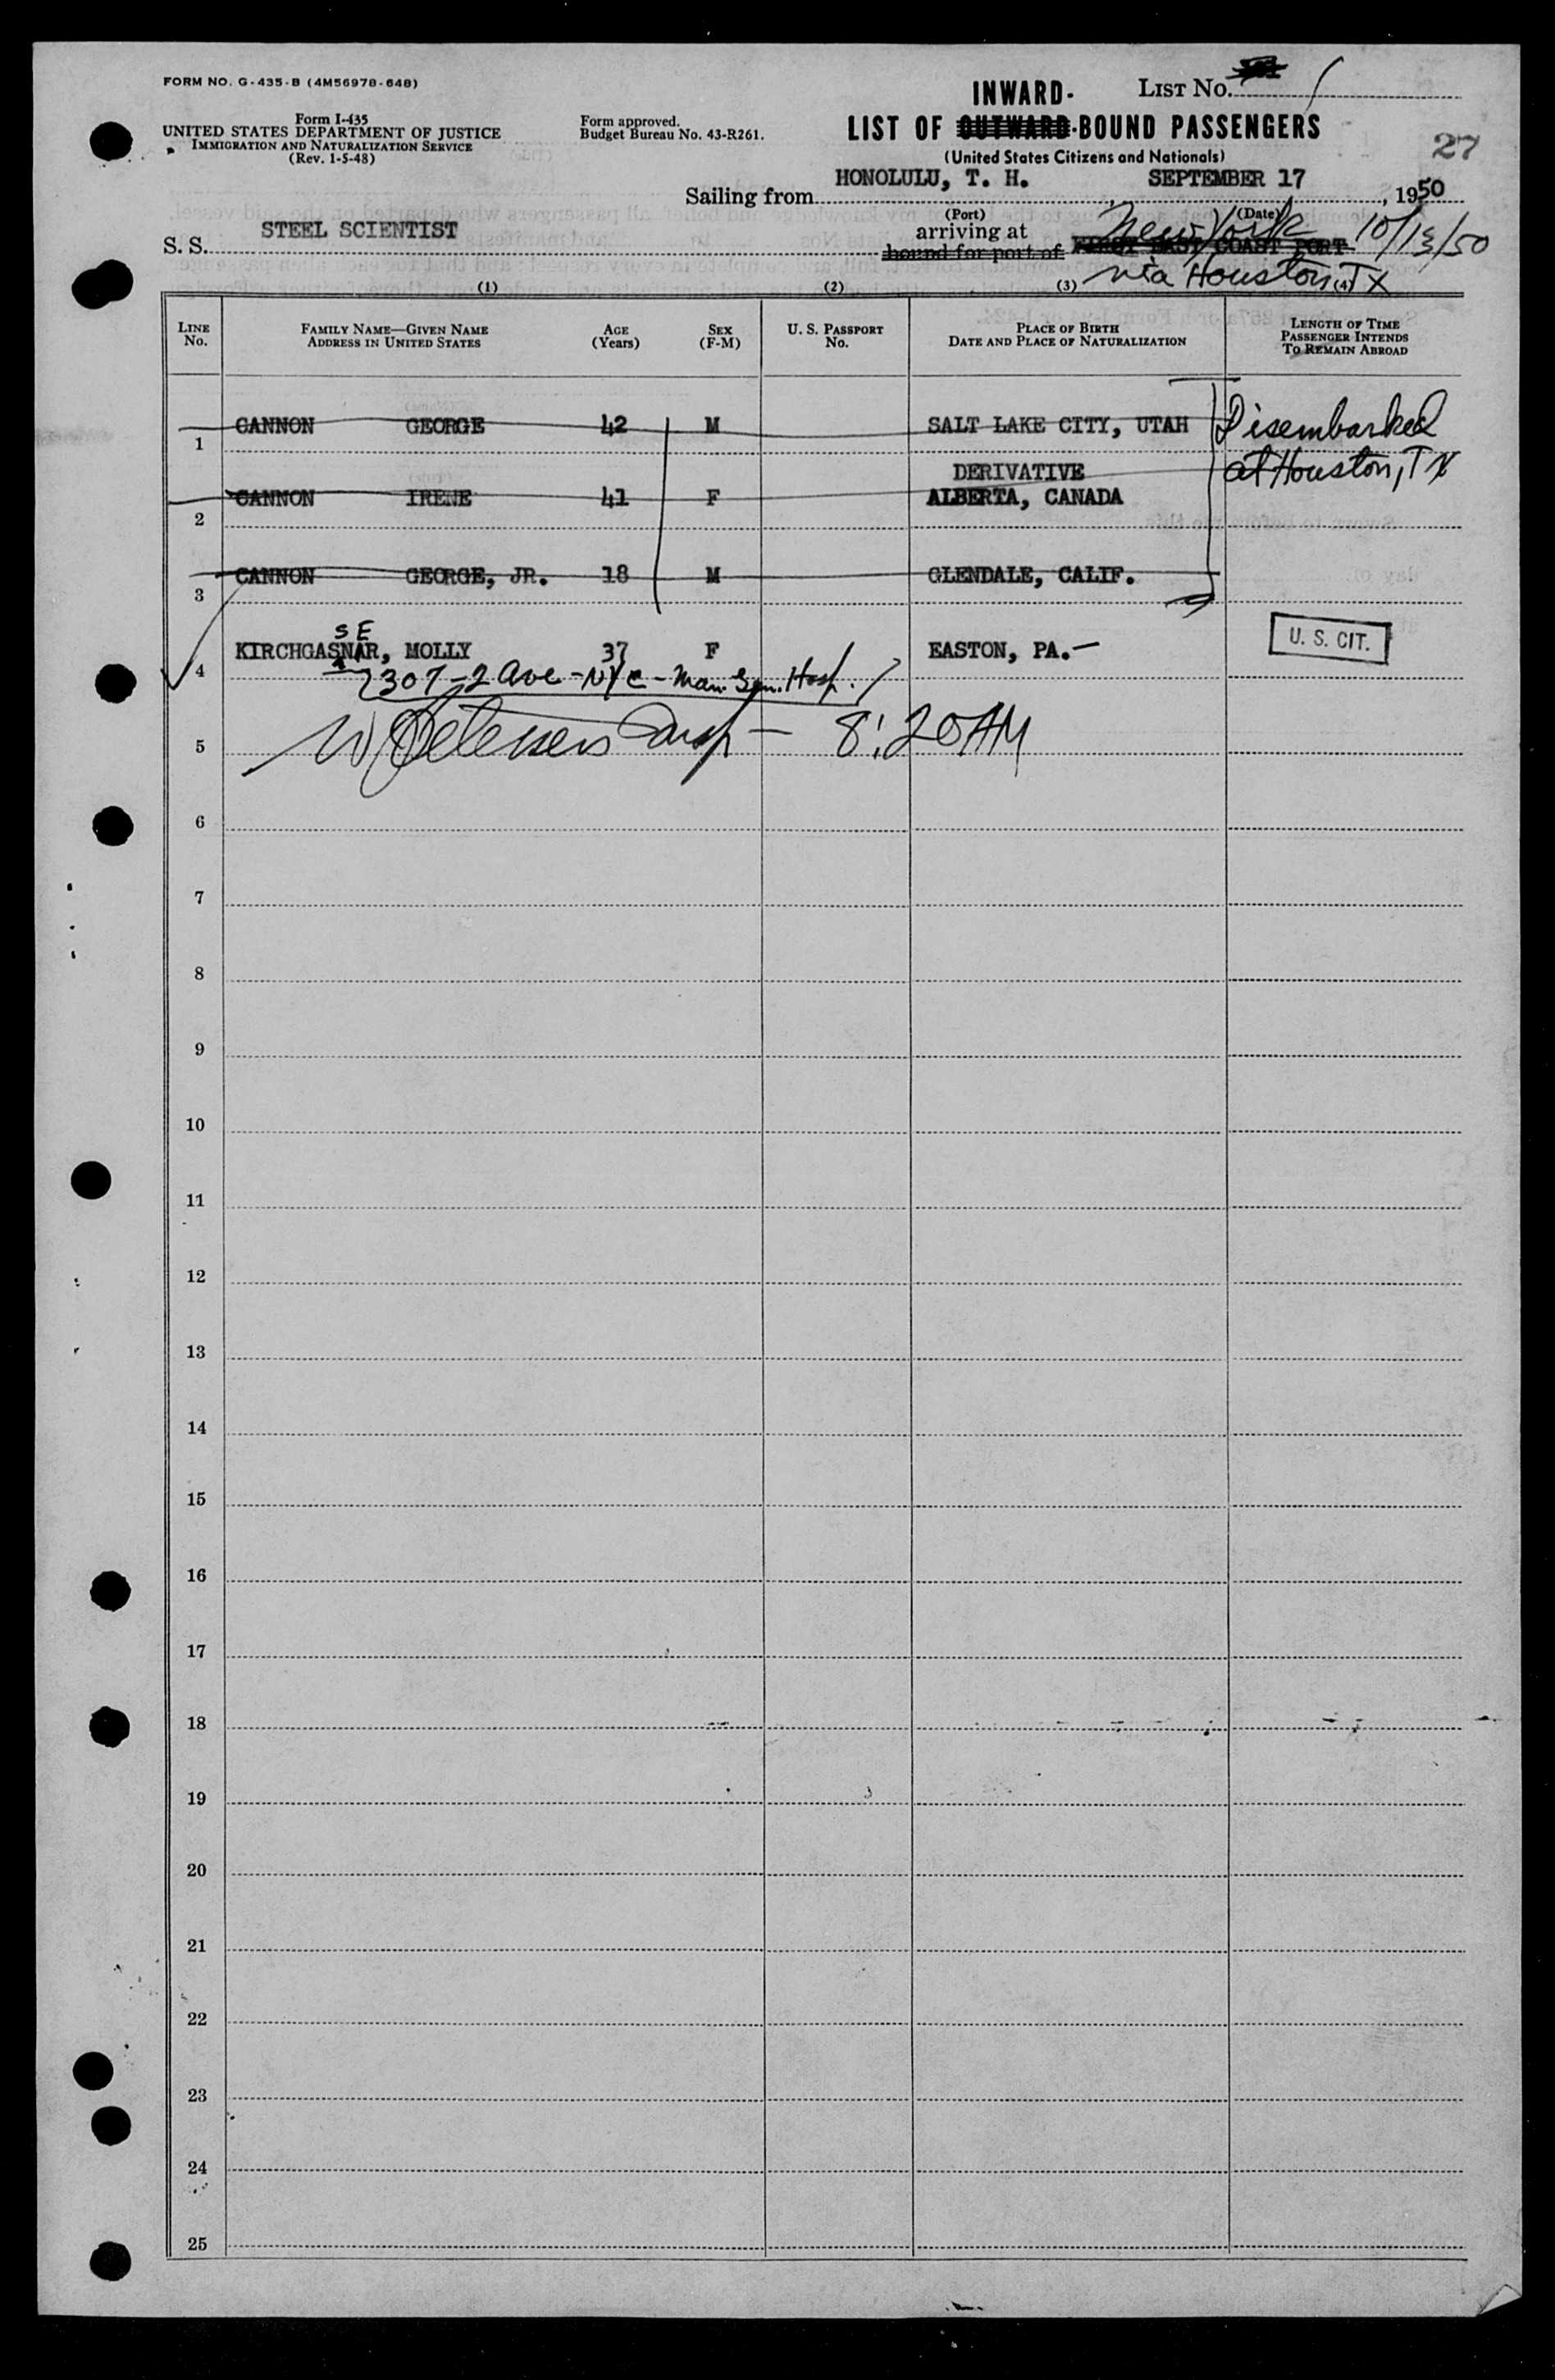 FORM NO. G-435-B (4M56978-648)
Form I-435
UNITED STATES DEPARTMENT OF JUSTICE
IMMIGRATION AND NATURALIZATION SERVICE
(Rev. 1-5-48)
Form approved.
Budget Bureau No. 43-R261.
INWARD-
LIST NO. 1
LIST OF OUTWARD-BOUND PASSENGERS
(United States Citizens and Nationals)
27
Sailing from HONOLULU, T. H. SEPTEMBER 17, 1950
(Port) (Date)
S. S. STEEL SCIENTIST
arriving at New York 10/13/50
bound for port of FIRST EAST COAST PORT
via Houston, TX
(1) (2) (3) (4)
LINE No.
FAMILY NAME—GIVEN NAME
ADDRESS IN UNITED STATES
AGE
(Years)
SEX
(F-M)
U. S. PASSPORT
No.
PLACE OF BIRTH
DATE AND PLACE OF NATURALIZATION
LENGTH OF TIME
PASSENGER INTENDS
TO REMAIN ABROAD
1 CANNON GEORGE 42 M SALT LAKE CITY, UTAH Disembarked
at Houston, TX
DERIVATIVE
2 CANNON IRENE 41 F ALBERTA, CANADA
3 CANNON GEORGE, JR. 18 M GLENDALE, CALIF.
SE
4 KIRCHGASNAR, MOLLY 37 F EASTON, PA.— U. S. CIT.
307-2 Ave-NYC-Man. Gen. Hosp.
5 Insp — 8:20AM
6
7
8
9
10
11
12
13
14
15
16
17
18
19
20
21
22
23
24
25